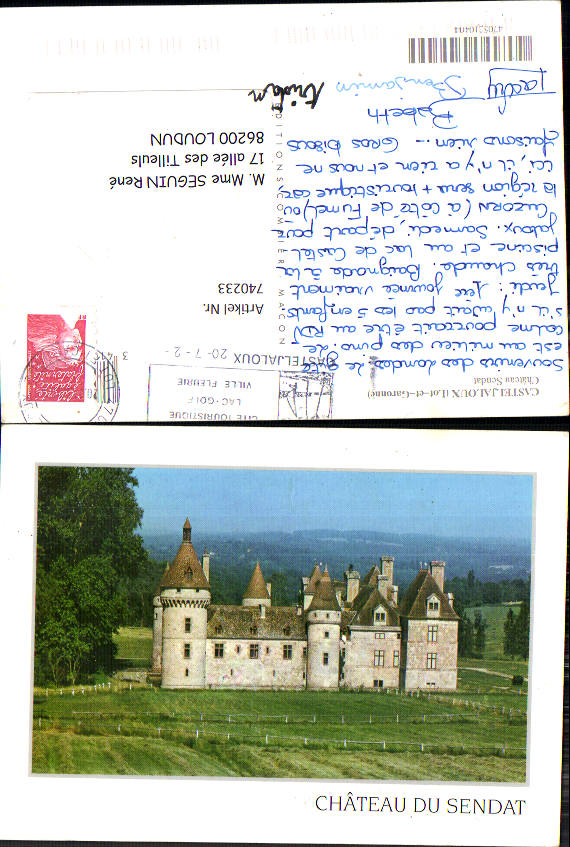 CASTELJALOUX (Lot-et-Garonne)
Château Sendat
Souvenirs des Landes. Le gîte
est au milieu des pins. Le
calme pourrait être au RDV
s'il n'y avait pas les 5 enfants.
Jeudi : 1ère journée vraiment
très chaude. Baignade à la
piscine et au lac de Castel
jaloux. Samedi, départ pour
CUZORN (à côté de Fumel) où
la région sera + touristique car,
ici, il n'y a rien et nous ne
faisons rien... Gros bisous
Babeth
Benjamin
Tristan
CITE TOURISTIQUE
LAC - GOLF
VILLE FLEURIE
CASTELJALOUX 20-7-2
EDITIONS COMBIER MACON
Artikel Nr.
740233
M. Mme SEGUIN René
17 allée des Tilleuls
86200 LOUDUN
CHÂTEAU DU SENDAT